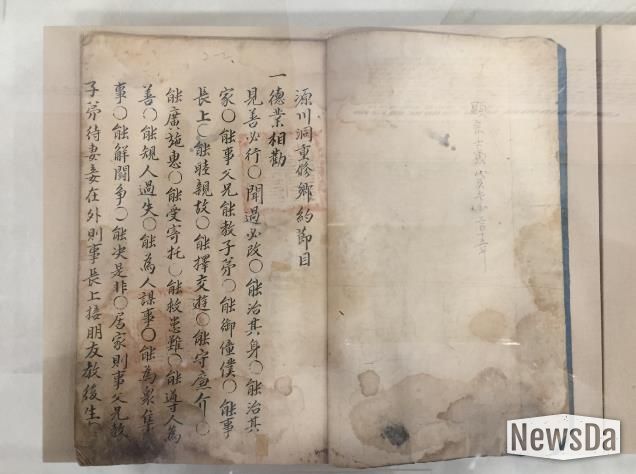 源川洞重修鄉約節目
一德業相勸
見善必行〇聞過必改〇能治其身〇能治其
家〇能事父兄能教子弟〇能御僮僕〇能事
長上〇能睦親故〇能擇交遊〇能守廉介〇
能廣施惠〇能受寄托〇能救患難〇能導人為
善〇能規人過失〇能為人謀事〇能為衆集
事〇能解鬪爭〇能决是非〇居家則事父兄教
子弟待妻妾在外則事長上接朋友教後生
NewsDa